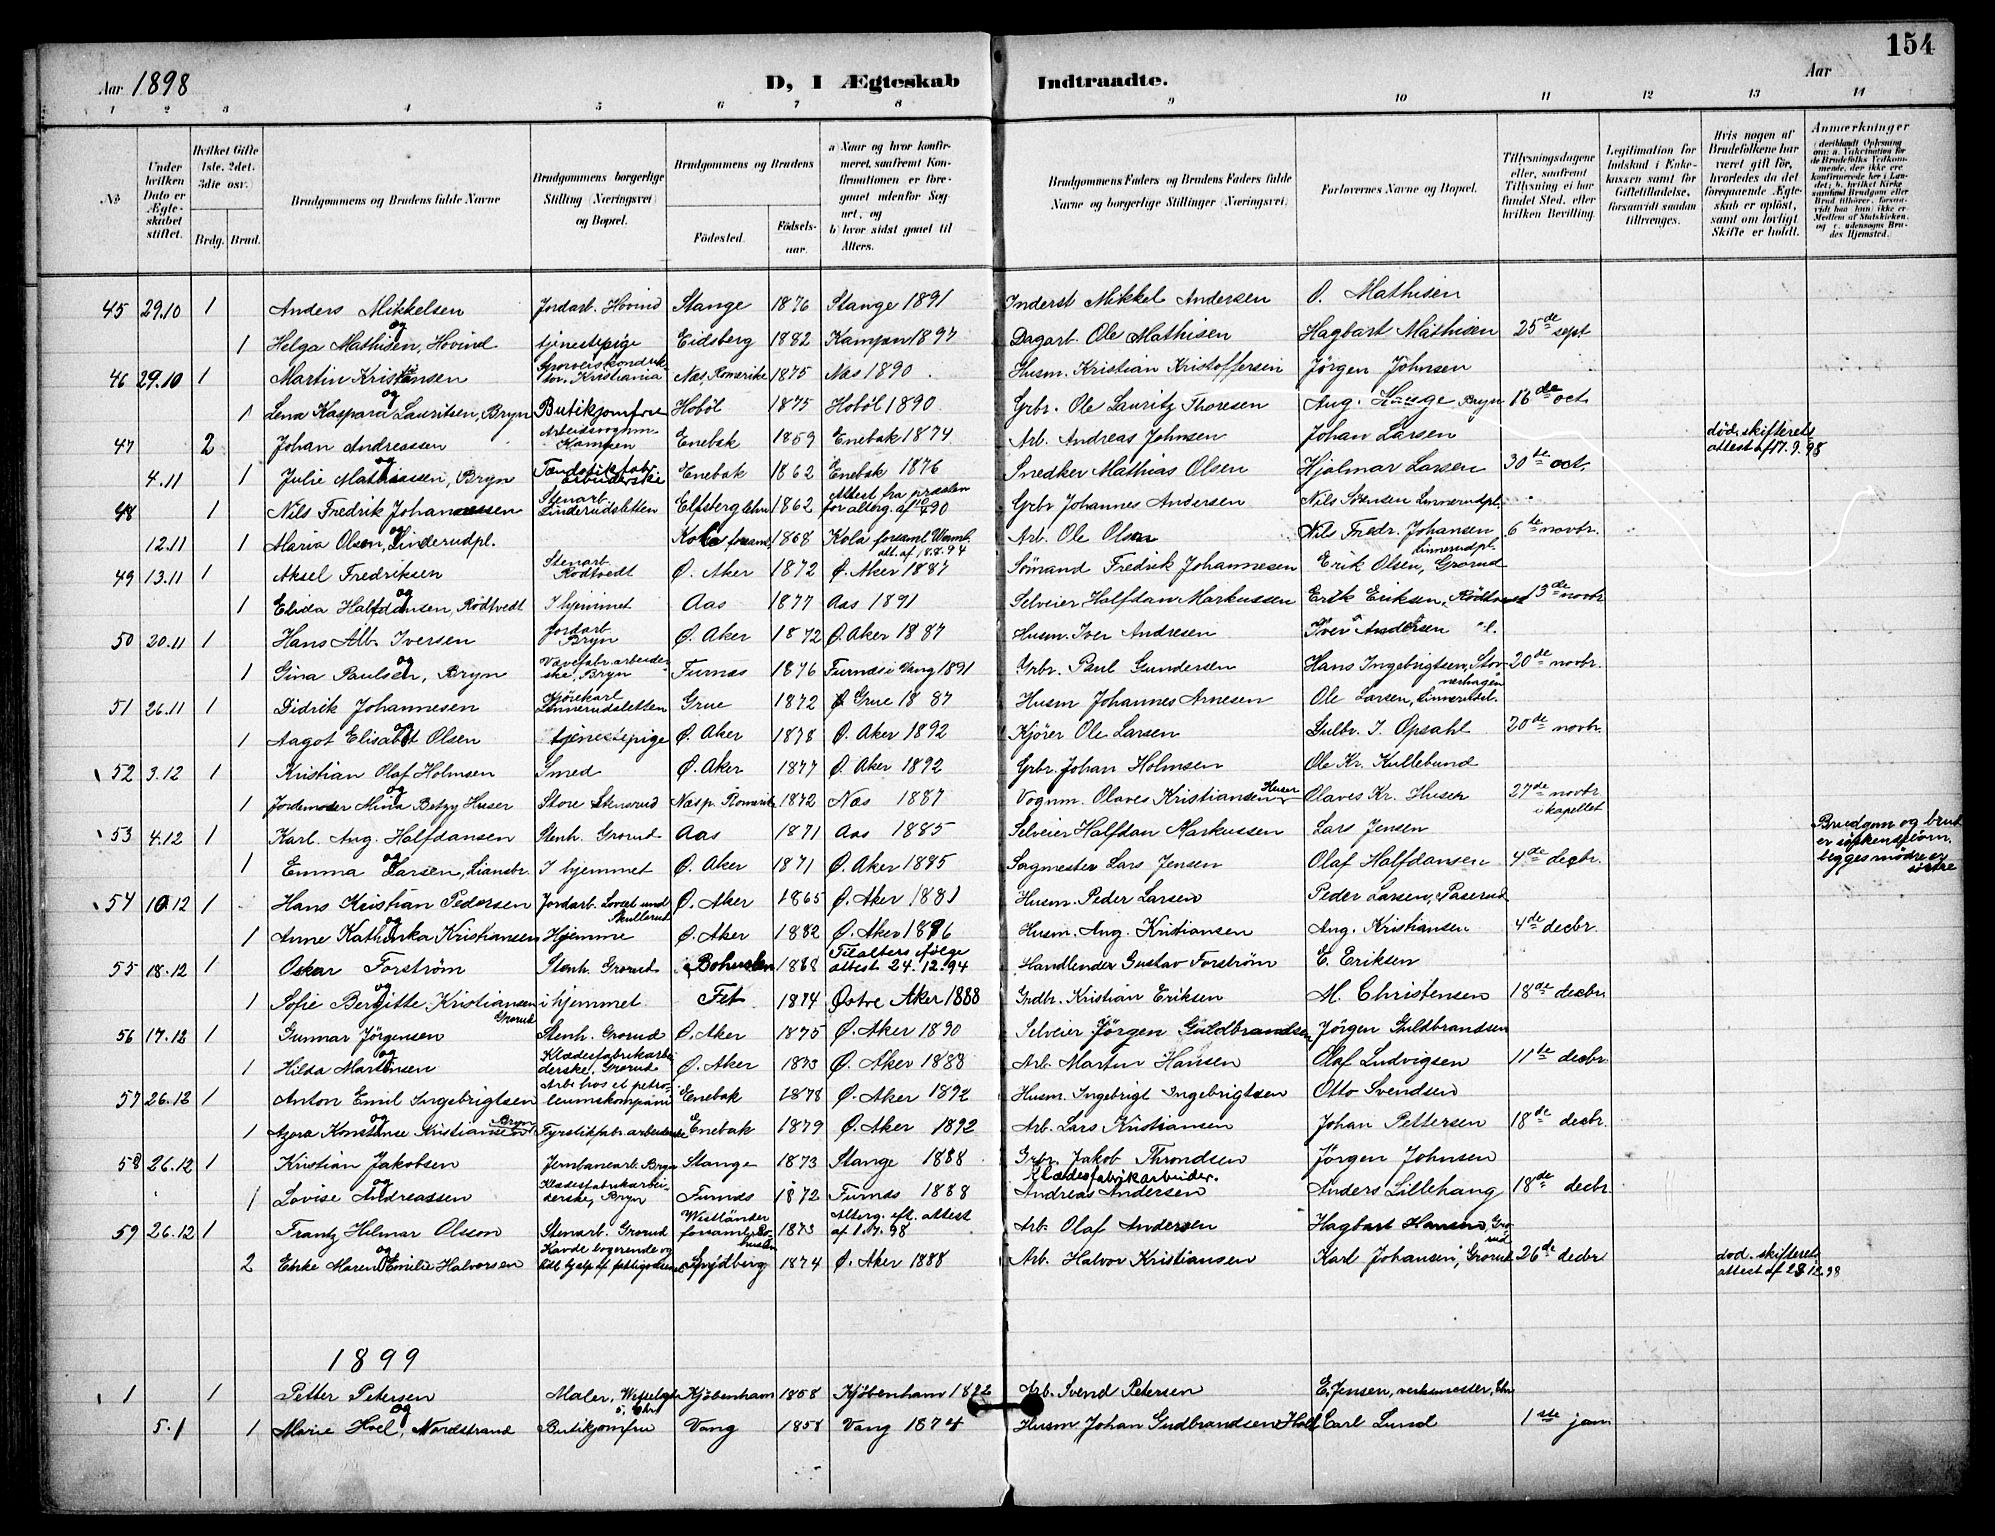 154
Aar 1898 D, I Ægteskab Indtraadte. Aar
1 2 3 4 5 6 7 8 9 10 11 12 13 14
№
Under hvilken Dato er Ægteskabet stiftet.
Hvilket Gifte 1ste. 2det. 3die osv.
Brdg. Brud.
Brudgommens og Brudens fulde Navne
Brudgommens borgerlige Stilling (Næringsvei) og Bopæl.
Brudgommens og Brudens
Fødested. Fødsels-aar.
a Naar og hvor konfirmeret, saafremt Konfirmationen er foregaaet udenfor Sognet, og b) hvor sidst gaaet til Alters.
Brudgommens Faders og Brudens Faders fulde Navne og borgerlige Stillinger (Næringsvei).
Forlovernes Navne og Bopæl.
Tillysningsdagene eller, saafremt Tillysning ei har fundet Sted, efter hvilken Bevilling.
Legitimation for Indskud i Enkekassen samt for Giftetilladelse, forsaavidt saadan tiltrænges.
Hvis nogen af Brudefolkene har været gift før, hvorledes da det foregaaende Ægteskab er opløst, samt om lovligt Skifte er holdt.
Anmærkninger (deriblandt Oplysning om: a. Vakcination for de Brudefolks Vedkommende, der ikke ere konfirmerede her i Landet; b. hvilket Kirkesamfund Brudgom eller Brud tilhører, forsaavidt han (hun) ikke er Medlem af Statskirken, og c. udensogns Brudes Hjemsted.)
45 29.10 1 Anders Mikkelsen Jordarb. Hovind Stange 1876 Stange 1891 Inderst Mikkel Andersen O. Mathisen
og
1 Helga Mathisen, Hovind tjenestepige Eidsberg 1882 Kampen 1897 Dagarb. Ole Mathisen Hagbart Mathisen 25de sept.
46 29.10 1 Martin Kristiansen Sporveiskonduktør, Kristiania Næs, Romerike 1875 Næs 1890. Husm. Kristian Kristoffersen Jörgen Johnsen
og
1 Lena Kaspara Lauritsen, Bryn Butikjomfru Hobøl 1875 Hobøl 1890. Grbr. Ole Lauritz Thoresen Aug. Hauge Bryn 16de oct.
47 2 Johan Andreassen Arbeidsvognm. Kampen Enebak 1859 Enebak 1874. Arb. Andreas Johnsen Johan Larsen død, skifterets attest af 17.9.98
og
4.11 1 Julie Mathiassen, Bryn Tændstikfabr. arbeiderske Enebak 1862 Enebak 1876 Snedker Mathias Olsen Hjalmar Larsen 30te oct.
48 1 Nils Fredrik Johannessen Stenarb. Linderudsletten Elfsbergslehn 1862 Attest fra præsten for alterg. af 90 Grbr Johannes Andersen Nils Sörensen Linnerudpl.
og
12.11 1 Maria Olsen, Linderudpl. Kola forsaml. 1868 Kola forsaml. Wermb. att. af 18.8.94 Arb. Ole Olsen Nils Fredr. Johansen Linnerudpl. 6te novbr.
49 13.11 1 Aksel Fredriksen Stenarb. Rödtvedt Ø. Aker 1872 Ø. Aker 1887 Sömand Fredrik Johannesen Erik Olsen, Grorud
og
1 Elida Halfdansen, Rödtvedt I hjemmet Aas 1877 Aas 1891 Selveier Halfdan Markussen Erik Eriksen, Rödtvedt 13de novbr
50 20.11 1 Hans Alb. Iversen Jordarb. Bryn Ø. Aker 1872 Ø. Aker 1887 Husm. Iver Andresen Iver Andersen
og
1 Gina Paulsen, Bryn Vævefabr. arbeiderske, Bryn Furnæs 1876 Furnæs i Vang 1891 Grbr. Paul Gundersen Hans Ingebrigtsen, Stovnerhagen 20de novbr.
51 26.11 1 Didrik Johannesen Kjørekarl Linnerudsletten Grue 1872 Grue 1887 Husm Johannes Arnesen Ole Larsen, Linnerudsl.
og
1 Aagot Elisabet Olsen tjenestepige Ø. Aker 1878 Ø. Aker 1892 Kjörer Ole Larsen Gulbr. I. Opsahl 20de novbr.
52 3.12 1 Kristian Olaf Holmsen Smed Ø. Aker 1877 Ø. Aker 1892 Grbr. Johan Holmsen Ole Kr. Kullebund
og
1 Jordemoder Mina Betzy Huser Store Stensrud Næsp. Romerike 1872 Næs 1887 Vognm. Olaves Kristiansen Huser Olaves Kr. Huser 27de novbr i kapellet
53 4.12 1 Karl. Aug. Halfdansen Stenh. Grorud Aas 1871 Aas 1885 Selveier Halfdan Markussen Lars Jensen Brudgom og brud er søskendebørn. begges mødre er søstre
og
1 Emma Larsen, Liansbr. I hjemmet Ø. Aker 1871 Ø. Aker 1885 Sagmester Lars Jensen Olaf Halfdansen 4de decbr.
54 10.12 1 Hans Kristian Pedersen Jordarb. Skullerud Ø. Aker 1865 Ø. Aker 1881 Husm. Peder Larsen Peder Larsen,
og
1 Anne Kathinka Kristiansen Hjemme Ø. Aker 1882 Ø. Aker 1896 Husm. Aug. Kristiansen Aug. Kristiansen 4de decbr.
55 18.12 1 Oskar Forström Stenh. Grorud Bohuslen 1868 Til alters ifølge attest 24.12.94 Handlender Gustav Forström E. Eriksen
og
1 Sofie Bergitte Kristiansen Grorud i hjemmet Fet 1874 Østre Aker 1888 Grdbr. Kristian Eriksen M. Christensen 18de decbr.
56 17.12 1 Gunnar Jörgensen Stenh. Grorud Ø. Aker 1875 Ø. Aker 1890 Selveier Jörgen Guldbrandsen Jörgen Guldbrandsen
og
1 Hilda Martinsen Klædesfabrikarbeiderske, Grorud Ø. Aker 1873 Ø. Aker 1888 Arb. Martin Hansen Olaf Ludvigsen 11te decbr
57 26.12 1 Anton Emil Ingebrigtsen Arb. hos et petroleumskompani Enebak 1878 Ø. Aker 1892 Husm. Ingebrigt Ingebrigtsen Otto Svendsen
og
1 Agora Konstanse Kristiansen Bryn Fyrstikfabr. arbeiderske Enebak 1879 Ø. Aker 1892 Arb. Lars Kristiansen Johan Pettersen 18de decbr.
58 26.12 1 Kristian Jakobsen Jernbanearb. Bryn Stange 1873 Stange 1888 Grbr. Jakob Throndsen Jörgen Johnsen
og
1 Lovise Andreassen Klædesfabrikarbeiderske, Bryn Furnæs 1872 Furnæs 1888 Klædesfabrikarbeider. Andreas Andersen Anders Lillehaug 18de decbr
59 26.12 1 Frantz Hilmar Olsson Stenarb. Grorud Westländer forsaml. Bohuslen 1873 Alterg. eft. attest af 98 Arb. Olaf Andersen Hagbart Hansen, Grorud
og
2 Enke Maren Emilie Halvorsen Spydberg 1874 Ø. Aker 1888 Arb. Halvor Kristiansen Karl Johansen, Grorud 26de decbr død. skifterets attest af 28.12.98
1899
1 1 Petter Petersen Maler, Kjøbenhavn 1858 Kjøbenhavn 1822 Arb. Svend Petersen E. Jensen, verksmester, Chr.
og
5.1 1 Marie Hoel, Nordstrand Butikjomfru Vang 1858 Vang 1874 Husm Johan Gudbrandsen Hoel Carl Lund 1ste jan.